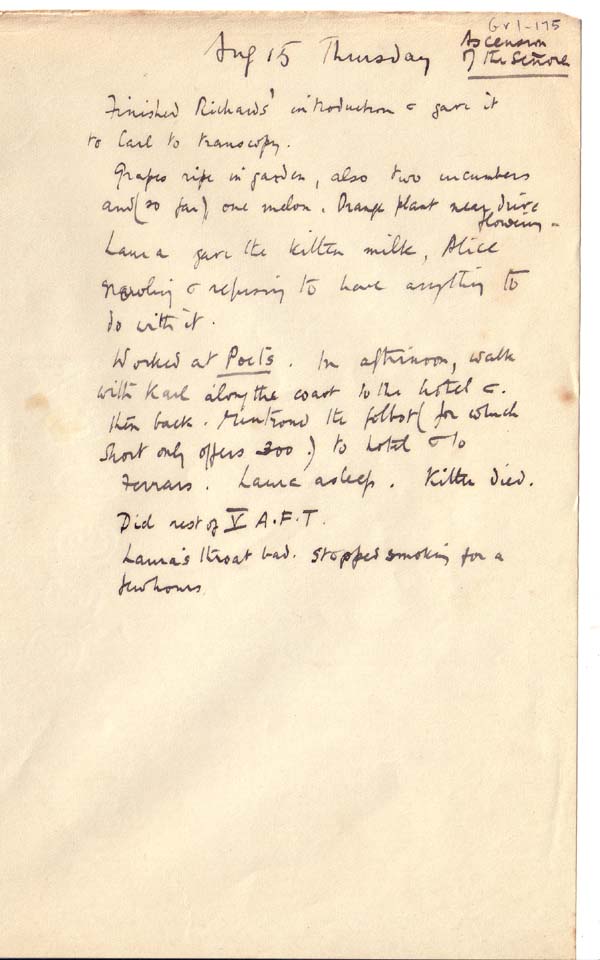 Gr 1-175
Aug 15 Thursday
Ascension
of the Señora
Finished Richards' introduction & gave it
to Carl to transcopy.
Grapes ripe in garden, also two cucumbers
and (so far) one melon. Orange plant near drive
flowering.
Laura gave the kitten milk, Alice
growling & refusing to have anything to
do with it.
Worked at Poets. In afternoon, walk
with Karl along the coast to the hotel &
then back. Mentioned the folbot (for which
Short only offers 300.) to hotel & to
Ferrars. Laura asleep. Kitten died.
Did rest of V A.F.T.
Laura's throat bad. Stopped smoking for a
few hours